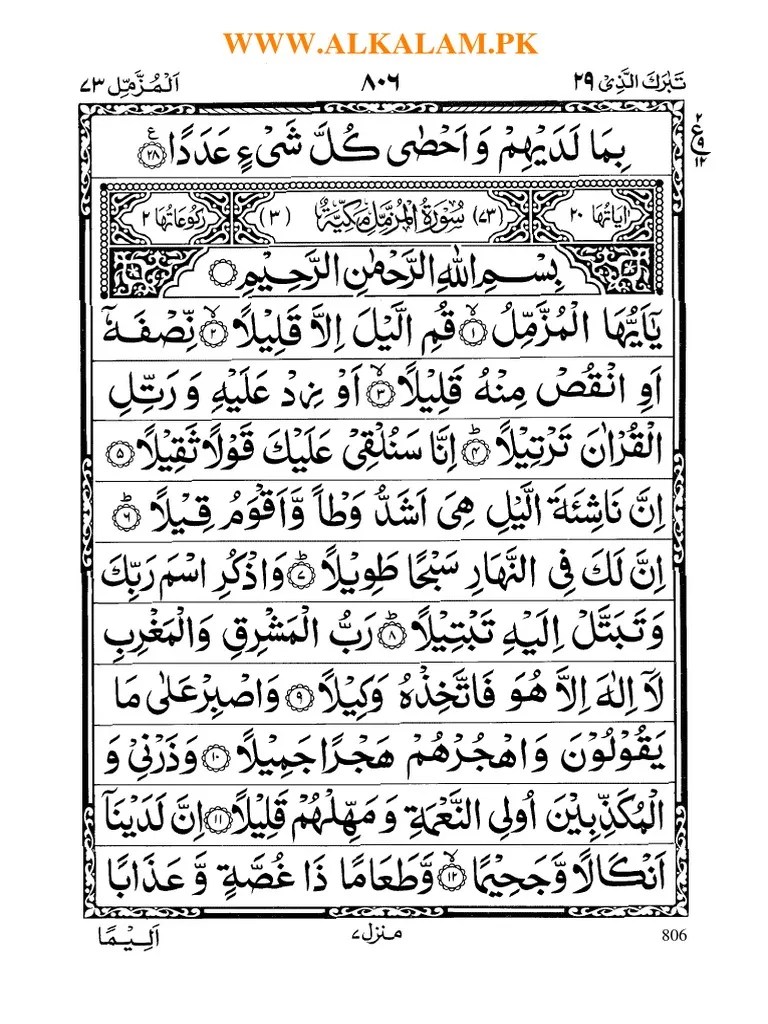 WWW.ALKALAM.PK
تَبٰرَكَ الَّذِیْ ۲۹
۸۰۶
اَلْمُزَّمِّل ۷۳
۲
ع
۹
۱۲
بِمَا لَدَیْهِمْ وَ اَحْصٰى كُلَّ شَیْءٍ عَدَدًا ﴿۲۸﴾ ع
اٰیاتُهَا ۲۰
(۷۳) سُوْرَةُ الْمُزَّمِّلِ مَكِّیَّةٌ (۳)
رُكُوْعَاتُهَا ۲
بِسْمِ اللّٰهِ الرَّحْمٰنِ الرَّحِیْمِ
یٰۤاَیُّهَا الْمُزَّمِّلُ ﴿۱﴾ۙ قُمِ الَّیْلَ اِلَّا قَلِیْلًا ﴿۲﴾ۙ نِّصْفَهٗۤ
اَوِ انْقُصْ مِنْهُ قَلِیْلًا ﴿۳﴾ۙ اَوْ زِدْ عَلَیْهِ وَ رَتِّلِ
الْقُرْاٰنَ تَرْتِیْلًا ﴿۴﴾ؕ اِنَّا سَنُلْقِیْ عَلَیْكَ قَوْلًا ثَقِیْلًا ﴿۵﴾
اِنَّ نَاشِئَةَ الَّیْلِ هِیَ اَشَدُّ وَطْاً وَّ اَقْوَمُ قِیْلًا ﴿۶﴾ؕ
اِنَّ لَكَ فِی النَّهَارِ سَبْحًا طَوِیْلًا ﴿۷﴾ؕ وَ اذْكُرِ اسْمَ رَبِّكَ
وَ تَبَتَّلْ اِلَیْهِ تَبْتِیْلًا ﴿۸﴾ؕ رَبُّ الْمَشْرِقِ وَ الْمَغْرِبِ
لَاۤ اِلٰهَ اِلَّا هُوَ فَاتَّخِذْهُ وَكِیْلًا ﴿۹﴾ وَ اصْبِرْ عَلٰى مَا
یَقُوْلُوْنَ وَ اهْجُرْهُمْ هَجْرًا جَمِیْلًا ﴿۱۰﴾ وَ ذَرْنِیْ وَ
الْمُكَذِّبِیْنَ اُولِی النَّعْمَةِ وَ مَهِّلْهُمْ قَلِیْلًا ﴿۱۱﴾ اِنَّ لَدَیْنَاۤ
اَنْكَالًا وَّ جَحِیْمًا ﴿۱۲﴾ۙ وَّ طَعَامًا ذَا غُصَّةٍ وَّ عَذَابًا
اَلِیْمًا
منزل ۷
806